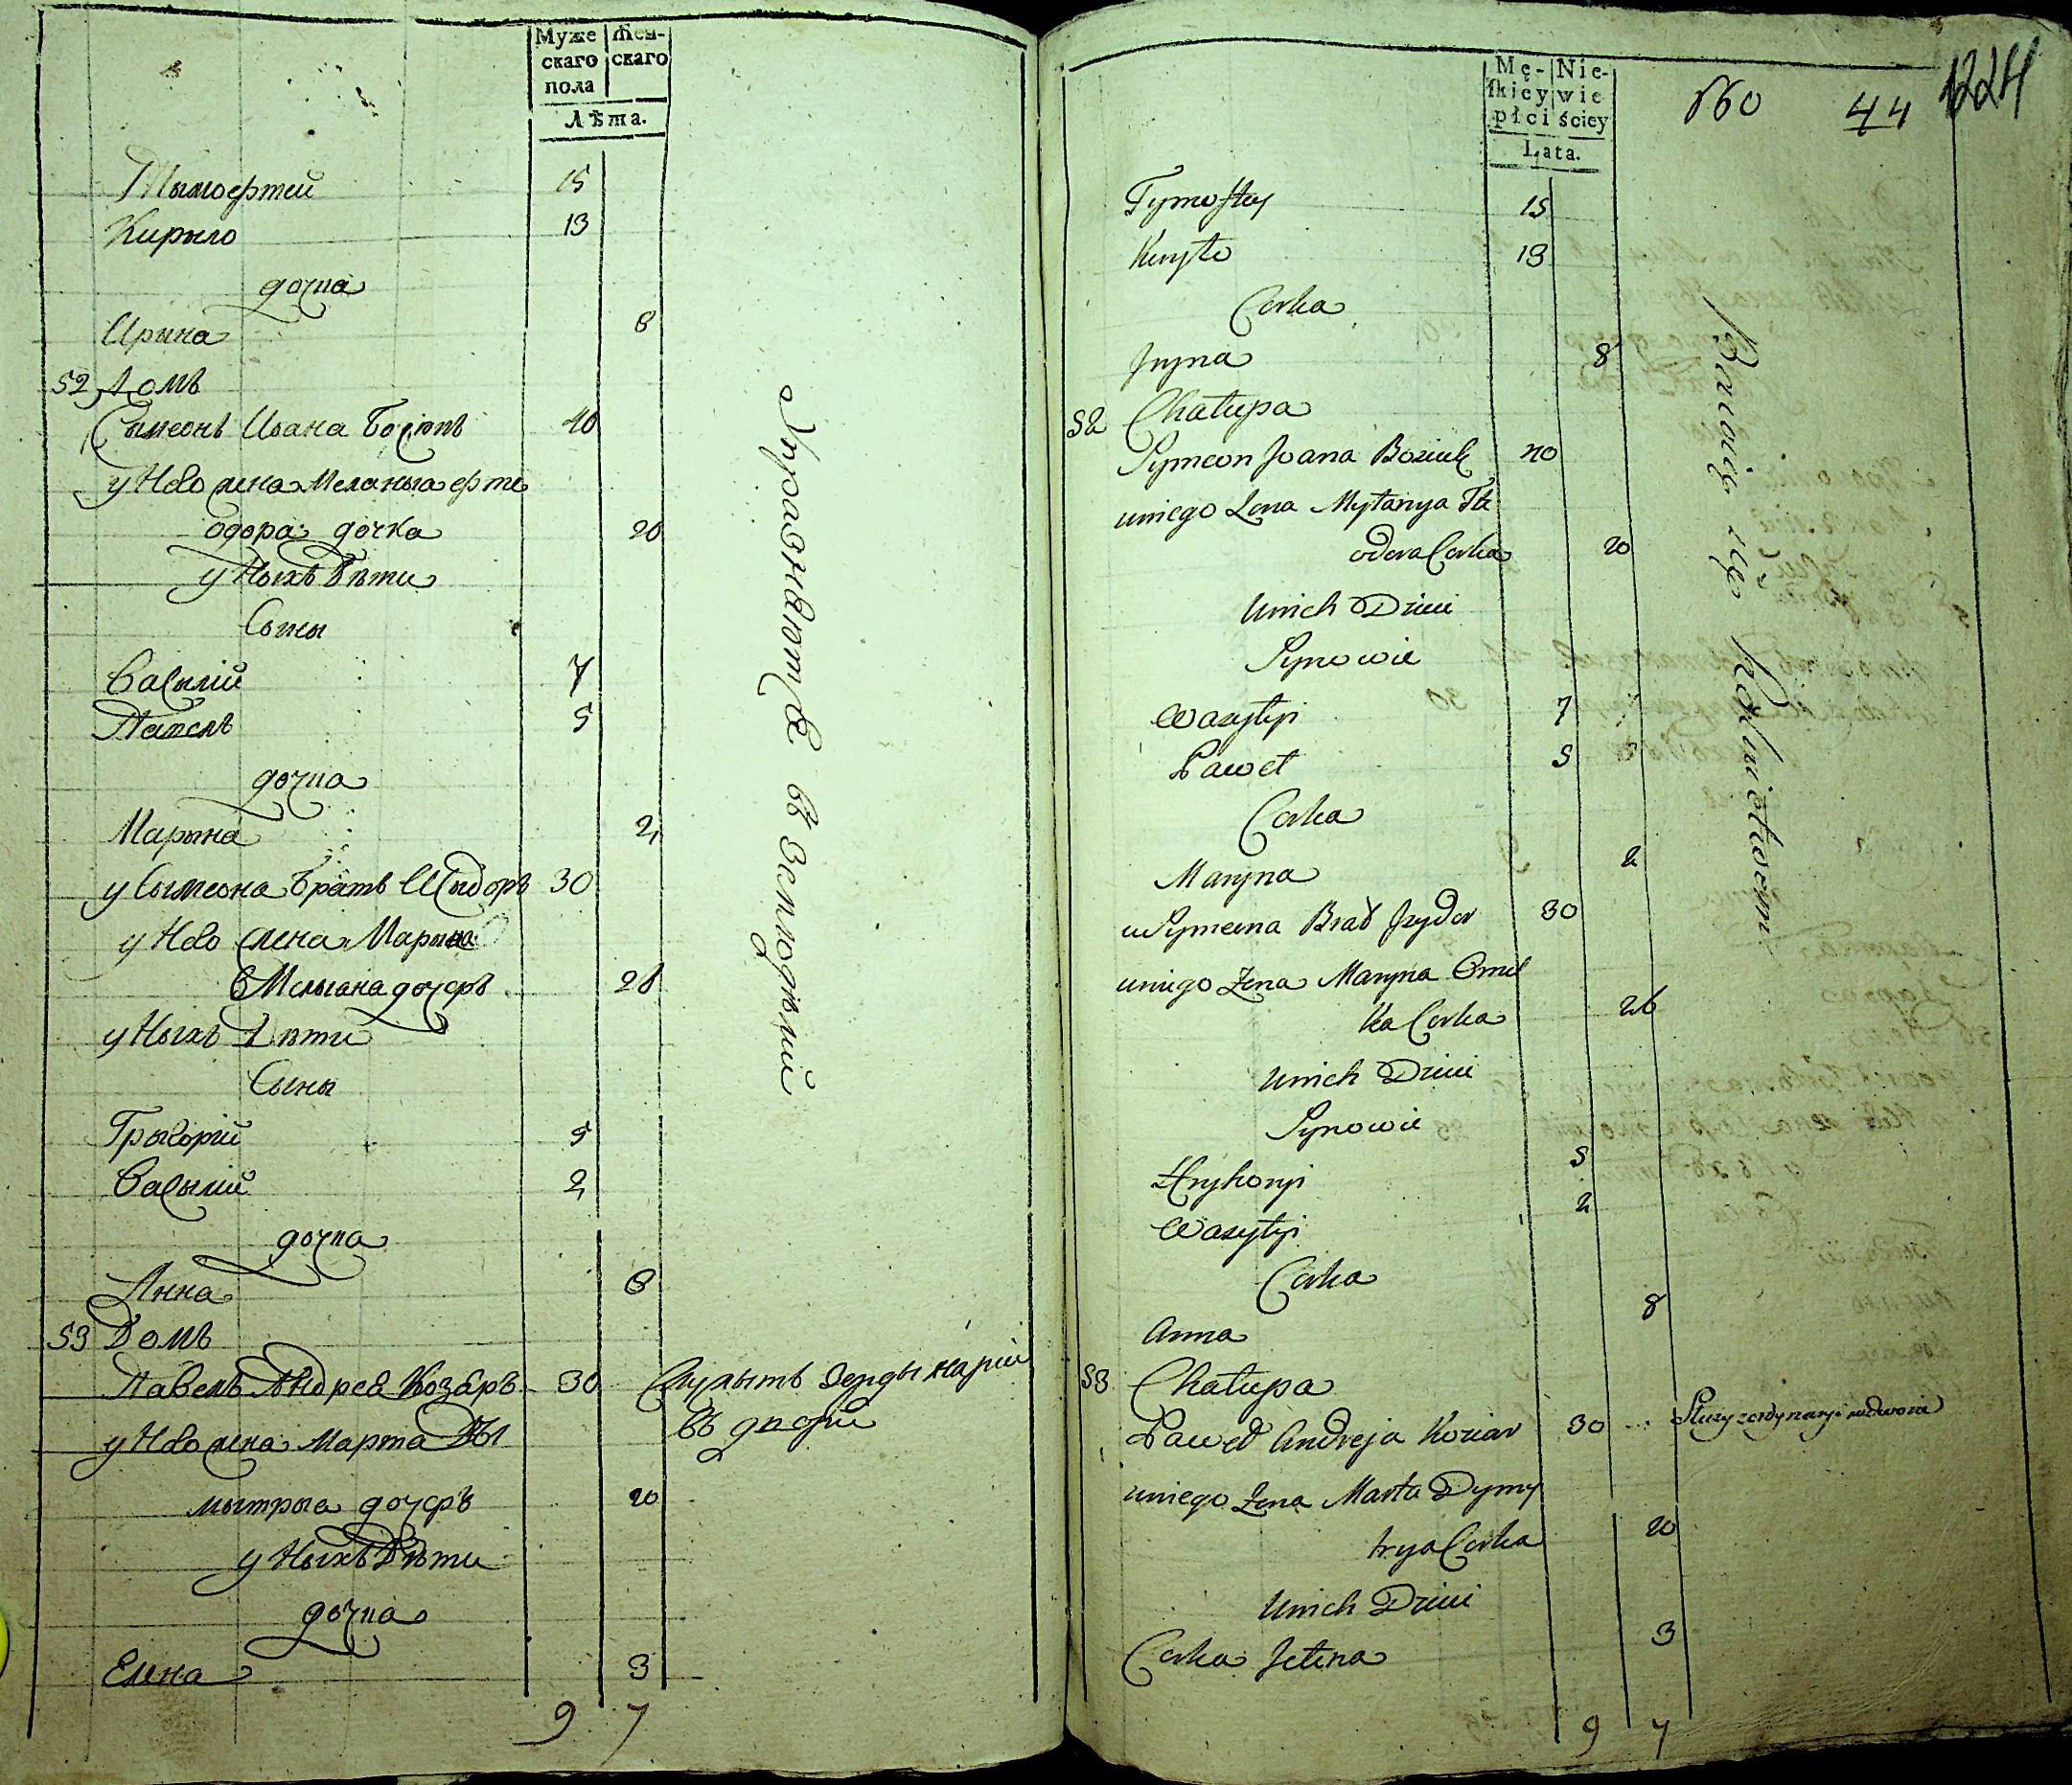 Муже
скаго
пола
Жен-
скаго
Лѣта.
Тымофтей 15
Кирыло 13
дочка
Ирына 8
52 Домъ
Сымеонъ Ивана 40
у Него жена Меланыа фте
одора дочка 20
у Ныхъ Дѣти
Сыны
Васылій 7
Павелъ 5
дочка
Марына 2
у Сымеона братъ Исыдоръ 30
у Него жена Марына
Омелыана дочерь 26
у Ныхъ Дѣти
Сыны
Грыгорій 5
Васылій 2
дочка
Анна 8
53 Домъ
Павелъ Андрея Козаръ 30
у Него жена Марта Ды
мытрыа дочерь 20
у Ныхъ Дѣти
дочка
Елена 3
9 7
Упражняютца въ Земледѣлій
Служытъ
въ дворѣ
Mę-
skiey
płci
Nie-
wie
ściey
Lata.
860 44 1224
Tymoftey 15
Kiryło 13
Corka
Iryna 8
52 Chałupa
Symeon Joana Boziuk 40
u niego Żona Mełanya Te
odora Corka 20
u nich Dzieci
Synowie
Wasylyi 7
Paweł 5
Corka
Maryna 2
u Symeona Brat Izydor 30
u niego Żona Maryna Omel
ka Corka 26
u nich Dzieci
Synowie
Hryhoryi 5
Wasylyi 2
Corka
Anna 8
53 Chałupa
Paweł Andreja Koziar 30
u niego Żona Marta Dymy
trya Corka 20
u nich Dzieci
Corka Jelena 3
9 7
Bawią się Rolnictwem
Służy z ordynaryi we dworze